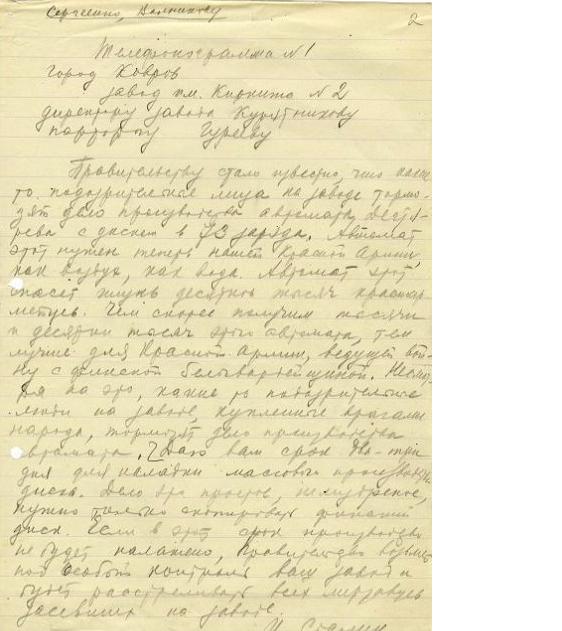 Сергеенко, Данникову
2
Телефонограмма N 1
город Ковров
завод им. Киркижа N 2
директору завода Курятникову
парторгу Гурееву
Правительству стало известно, что какие
то подозрительные лица на заводе тормо-
зят дело производства автомата Дегтя-
рева с диском в 73 заряда. Автомат
этот нужен теперь нашей Красной Армии,
как воздух, как вода. Автомат этот
спасет жизнь десятков тысяч красноар
мейцев. Чем скорее получим тысячи
и десятки тысяч этого автомата, тем
лучше для Красной Армии, ведущей вой-
ну с финской белогвардейщиной. Несмот
ря на это, какие то подозрительные
люди на заводе, купленные врагами
народа, тормозят дело производства
автомата. Даю вам срок два-три
дня для наладки массового производства
диска. Дело это простое, немудреное,
нужно только скопировать финский
диск. Если в этот срок производство
не будет налажено, Правительство возьмет
под особый контроль ваш завод и
будет расстреливать всех мерзавцев
засевших на заводе.
И. Сталин